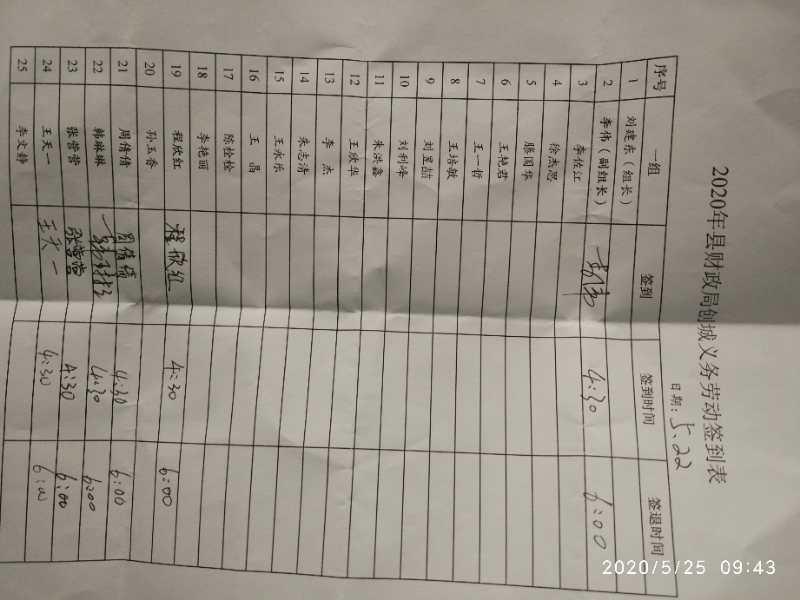 2020年县财政局创城义务劳动签到表
日期：5.22
序号 一组 签到 签到时间 签退时间
1 刘建东（组长）
2 李伟（副组长） 4:30 6:00
3 李佐江
4 徐杰思
5 滕国华
6 王艳君
7 王一哲
8 王培敏
9 刘昱喆
10 刘利峰
11 朱洪鑫
12 王欣华
13 李杰
14 朱志清
15 王永乐
16 王晶
17 陈栓栓
18 李艳丽
19 程欣红 程欣红 4:30 6:00
20 孙玉香
21 周倩倩 周倩倩 4:30 6:00
22 韩琳琳 4:30 6:00
23 张营营 张营营 4:30 6:00
24 王天一 王天一 4:30 6:00
25 李文静
2020/5/25 09:43